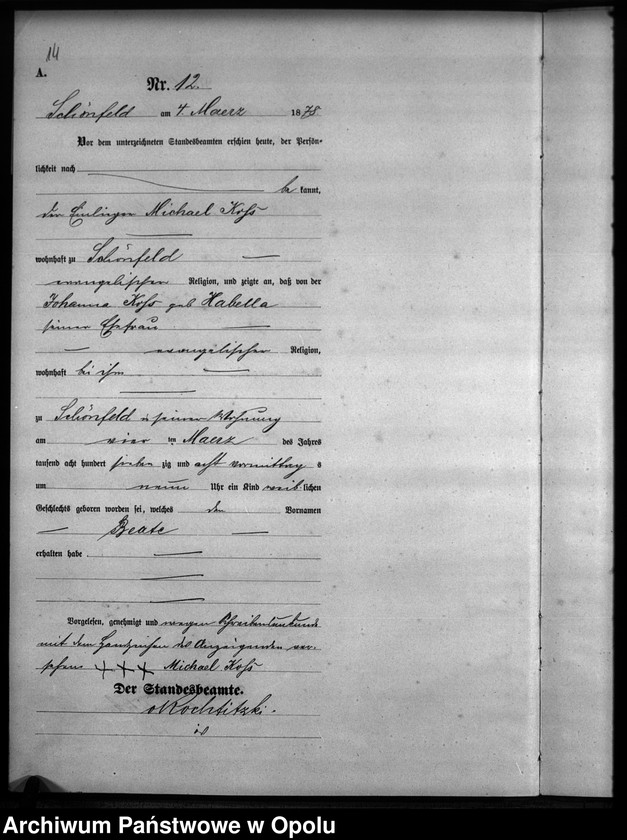 14
A.
Nr. 12.
Schönfeld am 4 Maerz 1878
Vor dem unterzeichneten Standesbeamten erschien heute, der Persön-
lichkeit nach
be kannt,
der Einlieger Michael Koss
wohnhaft zu Schönfeld
evangelischer Religion, und zeigte an, daß von der
Johanna Koss geb Habella
seiner Ehefrau
evangelischer Religion,
wohnhaft bei ihm
zu Schönfeld in seiner Wohnung
am vier ten Maerz des Jahres
tausend acht hundert sieben zig und acht vormittag s
um neun Uhr ein Kind weib lichen
Geschlechts geboren worden sei, welches den Vornamen
Beate
erhalten habe
Vorgelesen, genehmigt und wegen Schreibensunkunde
mit dem Handzeichen des Anzeigenden ver-
sehen +++ Michael Koss
Der Standesbeamte.
vKochtitzki.
Archiwum Państwowe w Opolu